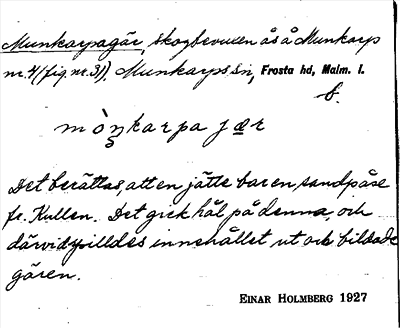 Munkarpagär, skogbevuxen ås å Munkarp
nr. 4 (fig. nr. 31). Munkarps sn, Frosta hd, Malm. l.
b.
mòŋkarpa jær
Det berättas, att en jätte bar en sandpåse
fr. Kullen. Det gick hål på denna, och
därvid spilldes innehållet ut och bildade
gären.
EINAR HOLMBERG 1927